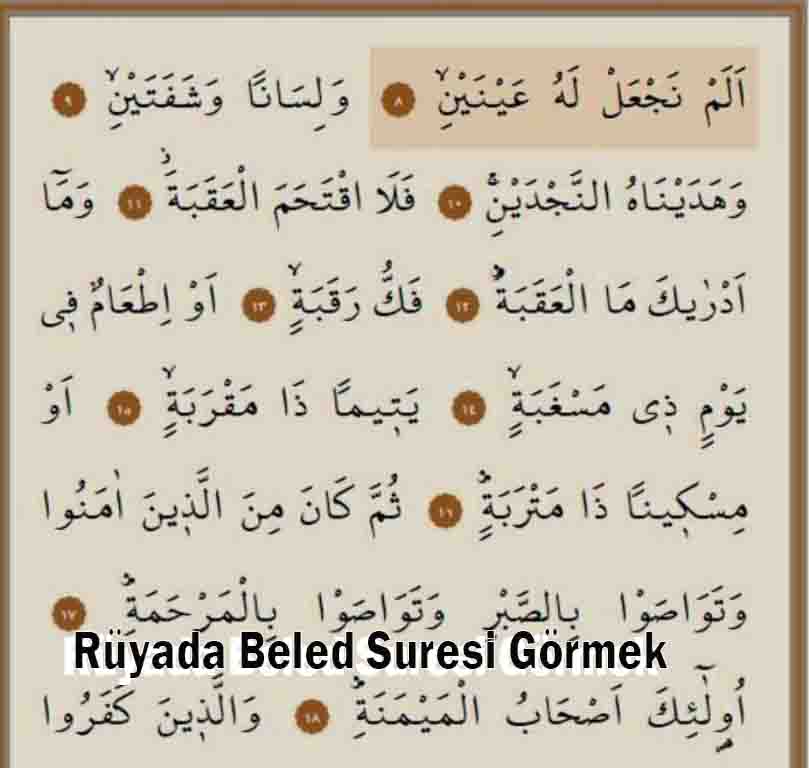 اَلَمْ نَجْعَلْ لَهُ عَيْنَيْنِۙ ٨ وَلِسَانًا وَشَفَتَيْنِۙ ٩
وَهَدَيْنَاهُ النَّجْدَيْنِۚ ١٠ فَلَا اقْتَحَمَ الْعَقَبَةَۘ ١١ وَمَٓا
اَدْرٰيكَ مَا الْعَقَبَةُۜ ١٢ فَكُّ رَقَبَةٍۙ ١٣ اَوْ اِطْعَامٌ ف۪ي
يَوْمٍ ذ۪ي مَسْغَبَةٍۙ ١٤ يَت۪يمًا ذَا مَقْرَبَةٍۙ ١٥ اَوْ
مِسْك۪ينًا ذَا مَتْرَبَةٍۜ ١٦ ثُمَّ كَانَ مِنَ الَّذ۪ينَ اٰمَنُوا
وَتَوَاصَوْا بِالصَّبْرِ وَتَوَاصَوْا بِالْمَرْحَمَةِۜ ١٧
Rüyada Beled Suresi Görmek
اُو۬لٰٓئِكَ اَصْحَابُ الْمَيْمَنَةِۜ ١٨ وَالَّذ۪ينَ كَفَرُوا